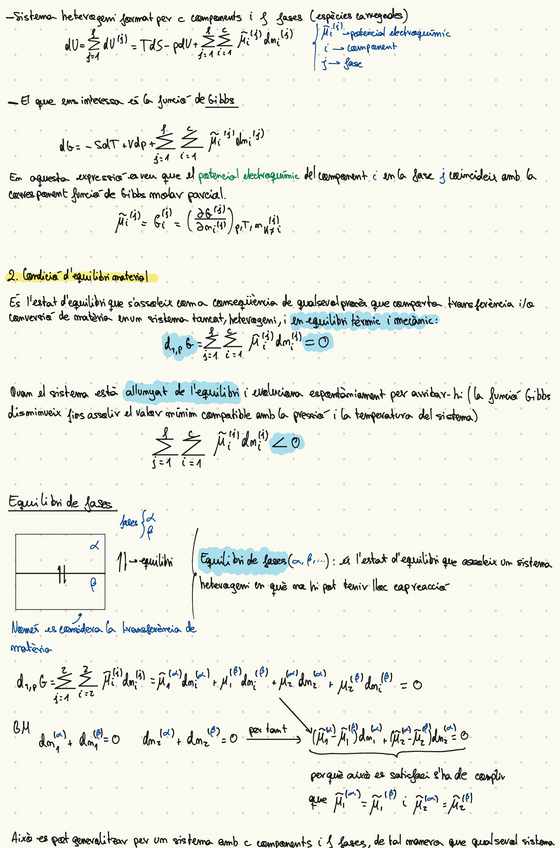 -Sistema heterogeni format per c components i f fases (espècies carregades)
dU = Σ_{j=1}^{f} dU^{(j)} = TdS - pdV + Σ_{j=1}^{f} Σ_{i=1}^{c} μ̃_i^{(j)} dn_i^{(j)}
μ̃_i^{(j)} → potencial electroquímic
i → component
j → fase
- El que ens interessa és la funció de Gibbs
dG = -SdT + Vdp + Σ_{j=1}^{f} Σ_{i=1}^{c} μ̃_i^{(j)} dn_i^{(j)}
En aquesta expressió es veu que el potencial electroquímic del component i en la fase j coincideix amb la
corresponent funció de Gibbs molar parcial.
μ̃_i^{(j)} = G_i^{(j)} = (∂G^{(j)}/∂n_i^{(j)})_{p,T,n_{k≠i}^{(j)}}
2. Condició d'equilibri material
És l'estat d'equilibri que s'assoleix com a conseqüència de qualsevol procés que comporta transferència i/o
conversió de matèria en un sistema tancat, heterogeni, i en equilibri tèrmic i mecànic:
d_{T,p} G = Σ_{j=1}^{f} Σ_{i=1}^{c} μ̃_i^{(j)} dn_i^{(j)} = 0
Quan el sistema està allunyat de l'equilibri i evoluciona espontàniament per arribar-hi (la funció Gibbs
disminueix fins assolir el valor mínim compatible amb la pressió i la temperatura del sistema)
Σ_{j=1}^{f} Σ_{i=1}^{c} μ̃_i^{(j)} dn_i^{(j)} < 0
Equilibri de fases
fases { α
β
α
β
⥮ → equilibri
Equilibri de fases (α, β, ...): és l'estat d'equilibri que assoleix un sistema
heterogeni en què no hi pot tenir lloc cap reacció
Només es considera la transferència de
matèria
d_{T,p} G = Σ_{j=1}^{2} Σ_{i=2}^{2} μ̃_i^{(j)} dn_i^{(j)} = μ̃_1^{(α)} dn_1^{(α)} + μ_1^{(β)} dn_1^{(β)} + μ_2^{(α)} dn_2^{(α)} + μ_2^{(β)} dn_2^{(β)} = 0
BM dn_1^{(α)} + dn_1^{(β)} = 0 dn_2^{(α)} + dn_2^{(β)} = 0 per tant → (μ̃_1^{(α)} - μ̃_1^{(β)}) dn_1 + (μ̃_2^{(α)} - μ̃_2^{(β)}) dn_2^{(α)} = 0
perquè això es satisfaci s'ha de complir
que μ̃_1^{(α)} = μ̃_1^{(β)} i μ̃_2^{(α)} = μ̃_2^{(β)}
Això es pot generalitzar per un sistema amb c components i f fases, de tal manera que qualsevol sistema